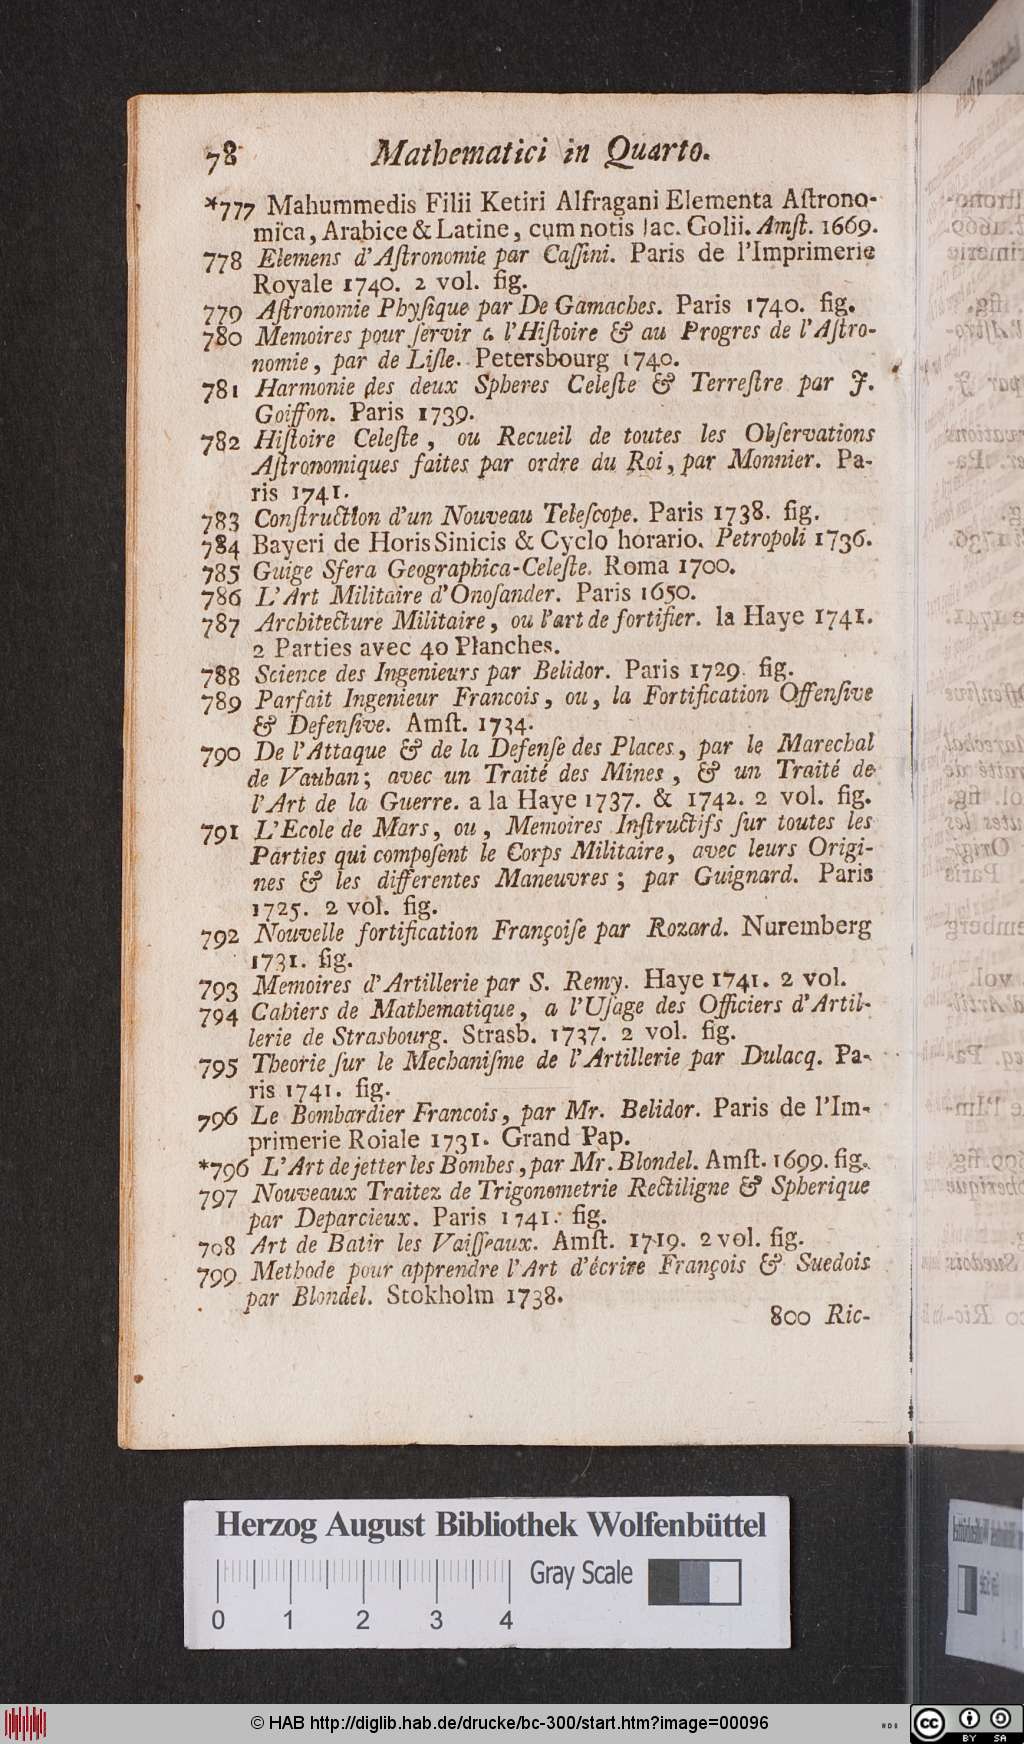 78 Mathematici in Quarto.
*777 Mahummedis Filii Ketiri Alfragani Elementa Aſtrono-
mica, Arabice & Latine, cum notis Jac. Golii. Amſt. 1669.
778 Elemens d'Aſtronomie par Caſſini. Paris de l'Imprimerie
Royale 1740. 2 vol. fig.
779 Aſtronomie Phyſique par De Gamaches. Paris 1740. fig.
780 Memoires pour ſervir a l'Hiſtoire & au Progres de l'Aſtro-
nomie, par de Liſle. Petersbourg 1740.
781 Harmonie des deux Spheres Celeſte & Terreſtre par J.
Goiffon. Paris 1739.
782 Hiſtoire Celeſte, ou Recueil de toutes les Obſervations
Aſtronomiques faites par ordre du Roi, par Monnier. Pa-
ris 1741.
783 Conſtruction d'un Nouveau Teleſcope. Paris 1738. fig.
784 Bayeri de Horis Sinicis & Cyclo horario. Petropoli 1736.
785 Guige Sfera Geographica-Celeſte. Roma 1700.
786 L'Art Militaire d'Onoſander. Paris 1650.
787 Architecture Militaire, ou l'art de fortifier. la Haye 1741.
2 Parties avec 40 Planches.
788 Science des Ingenieurs par Belidor. Paris 1729. fig.
789 Parfait Ingenieur Francois, ou, la Fortification Offenſive
& Defenſive. Amſt. 1734.
790 De l'Attaque & de la Defenſe des Places, par le Marechal
de Vauban; avec un Traité des Mines, & un Traité de
l'Art de la Guerre. a la Haye 1737. & 1742. 2 vol. fig.
791 L'Ecole de Mars, ou, Memoires Inſtructifs ſur toutes les
Parties qui compoſent le Corps Militaire, avec leurs Origi-
nes & les differentes Maneuvres; par Guignard. Paris
1725. 2 vol. fig.
792 Nouvelle fortification Françoiſe par Rozard. Nuremberg
1731. fig.
793 Memoires d'Artillerie par S. Remy. Haye 1741. 2 vol.
794 Cahiers de Mathematique, a l'Uſage des Officiers d'Artil-
lerie de Strasbourg. Strasb. 1737. 2 vol. fig.
795 Theorie ſur le Mechaniſme de l'Artillerie par Dulacq. Pa-
ris 1741. fig.
796 Le Bombardier Francois, par Mr. Belidor. Paris de l'Im-
primerie Roiale 1731. Grand Pap.
*796 L'Art de jetter les Bombes, par Mr. Blondel. Amſt. 1699. fig.
797 Nouveaux Traitez de Trigonometrie Rectiligne & Spherique
par Deparcieux. Paris 1741. fig.
798 Art de Batir les Vaiſſeaux. Amſt. 1719. 2 vol. fig.
799 Methode pour apprendre l'Art d'écrire François & Suedois
par Blondel. Stokholm 1738.
800 Ric-
Herzog August Bibliothek Wolfenbüttel
Gray Scale
0 1 2 3 4
© HAB http://diglib.hab.de/drucke/bc-300/start.htm?image=00096
cc BY SA